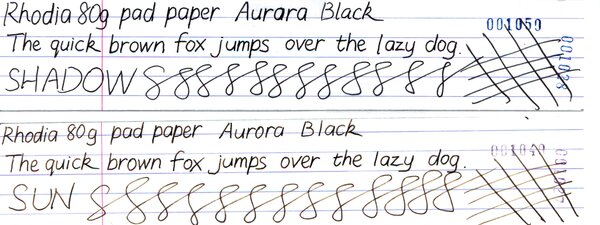 Rhodia 80g pad paper Aurara Black
001050
The quick brown fox jumps over the lazy dog.
001028
SHADOW
Rhodia 80g pad paper Aurora Black
The quick brown fox jumps over the lazy dog.
001049
SUN